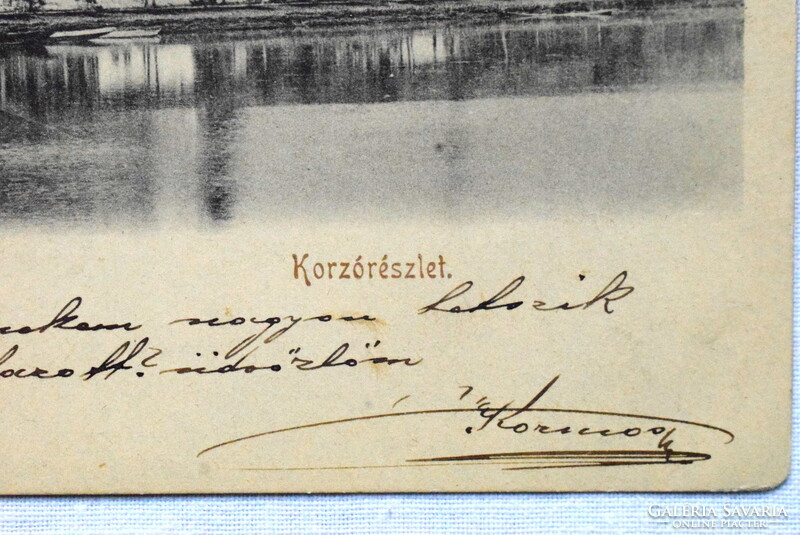 Korzórészlet.
nekem nagyon tetszik
üdvözlöm
Kormos
GALÉRIA SAVARIA
ONLINE PIACTÉR